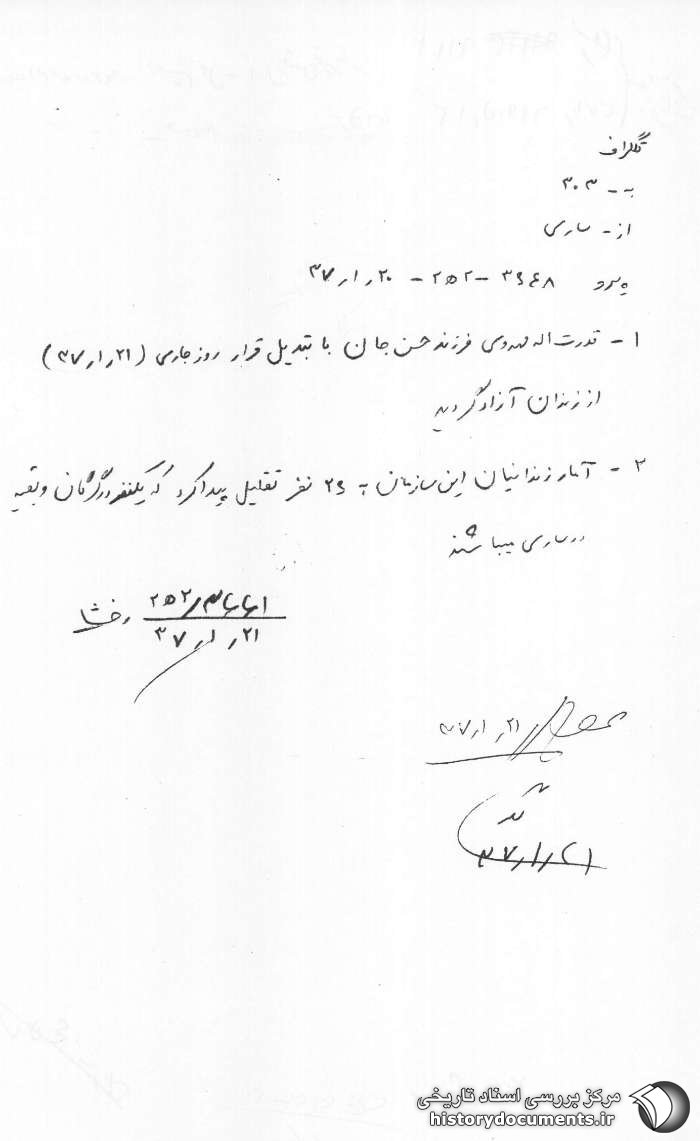 تلگراف
به - ۳۰۳
از - ساری
پیرو ۳۹۴۸ - ۲۵۲ - ۲۰ر۱ر۳۷
۱ - قدرت اله مهدوی فرزند حسن جان با تبدیل قرار روز جاری (۲۱ر۱ر۳۷)
از زندان آزاد گردید
۲ - آمار زندانیان این سازمان به ۲۶ نفر تقلیل پیدا کرد که یکنفر در گرگان و بقیه
در ساری میباشند
۲۵۲
۲۱ر۱ر۳۷
رخشا
۲۱ر۱ر۳۷
۲۱ر۱ر۳۷
مرکز بررسی اسناد تاریخی
historydocuments.ir